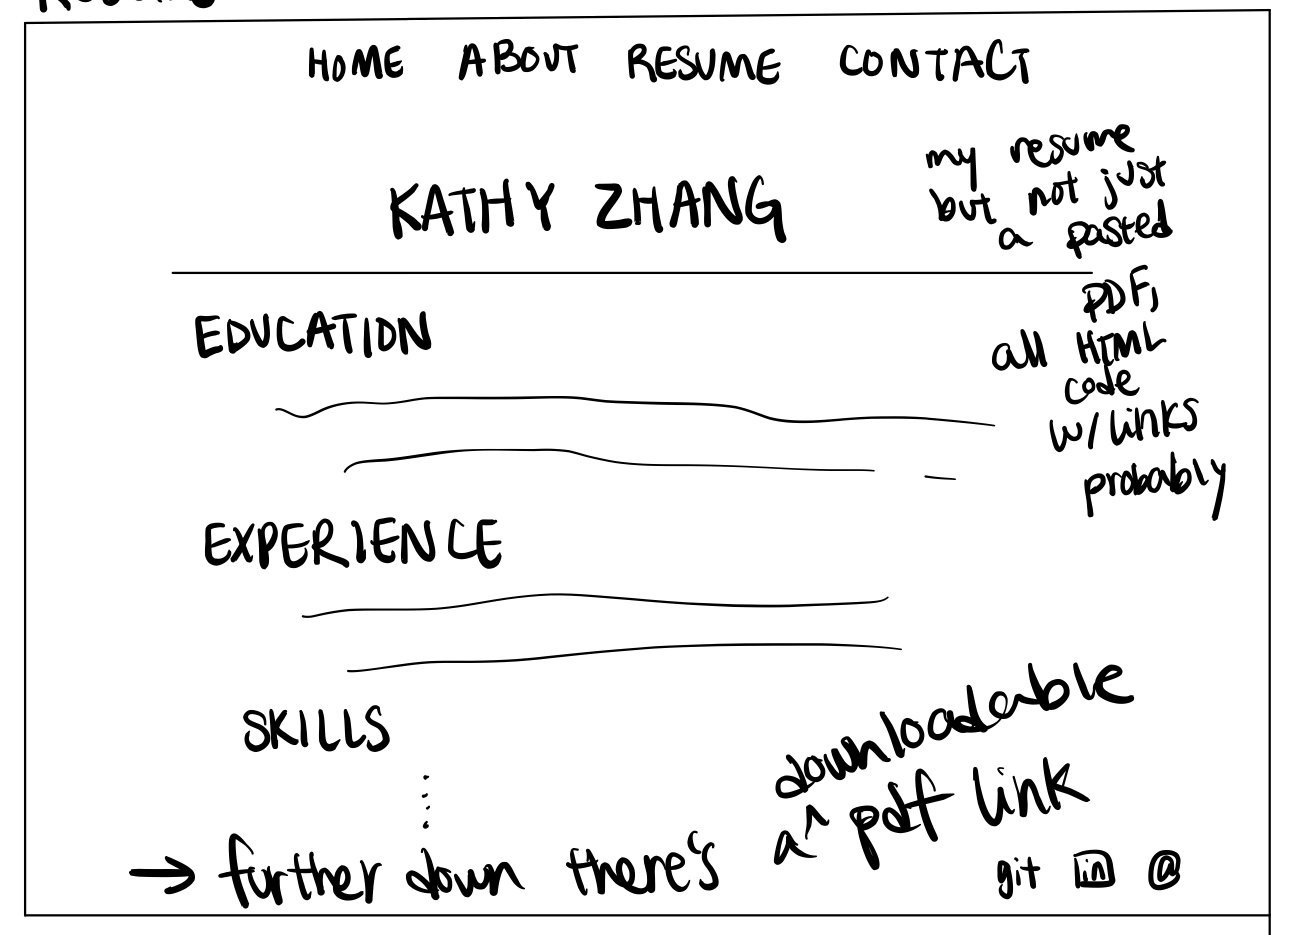 HOME ABOUT RESUME CONTACT
KATHY ZHANG
my resume
but not just
a pasted
PDF,
all HTML
code
w/links
probably
EDUCATION
EXPERIENCE
SKILLS
→ further down there's a ^ pdf link
downloadable
git in @